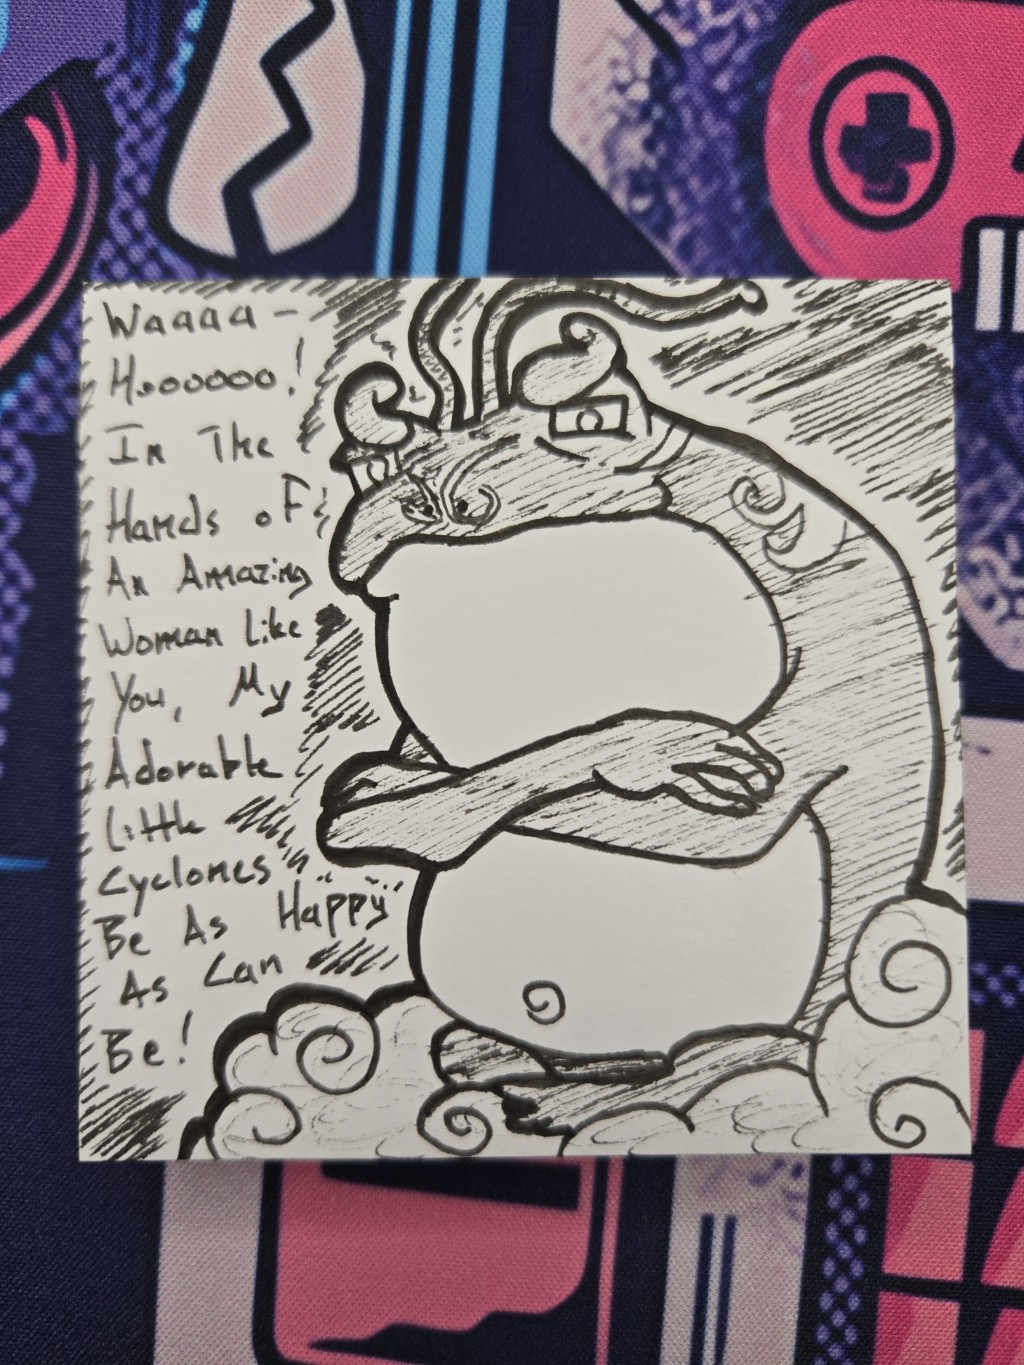 Waaaa -
Hooooooo!
In The
Hands oF
An Amazing
Woman Like
You, My
Adorable
Little
Cyclones
Be As Happy
As Can
Be!